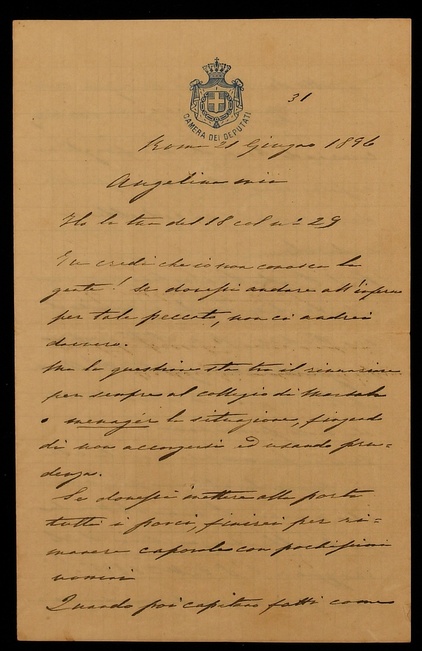 31
CAMERA DEI DEPUTATI
Roma 21 Giugno 1896
Angelina mia
Ho la tua del 18 col nº 29
Tu credi che io non conosca la
gente! Se dovessi andare all'inferno
per tale peccato, non ci andrei
davvero.
Ma la questione sta tra il rinunziare
per sempre al collegio di Marsala
o menager la situazione, fingendo
di non accorgersi ed usando pru-
denza.
Se dovessi mettere alla porta
tutti i porci, finirei per ri-
manere caporale con pochissimi
uomini
Quando poi capitano fatti come